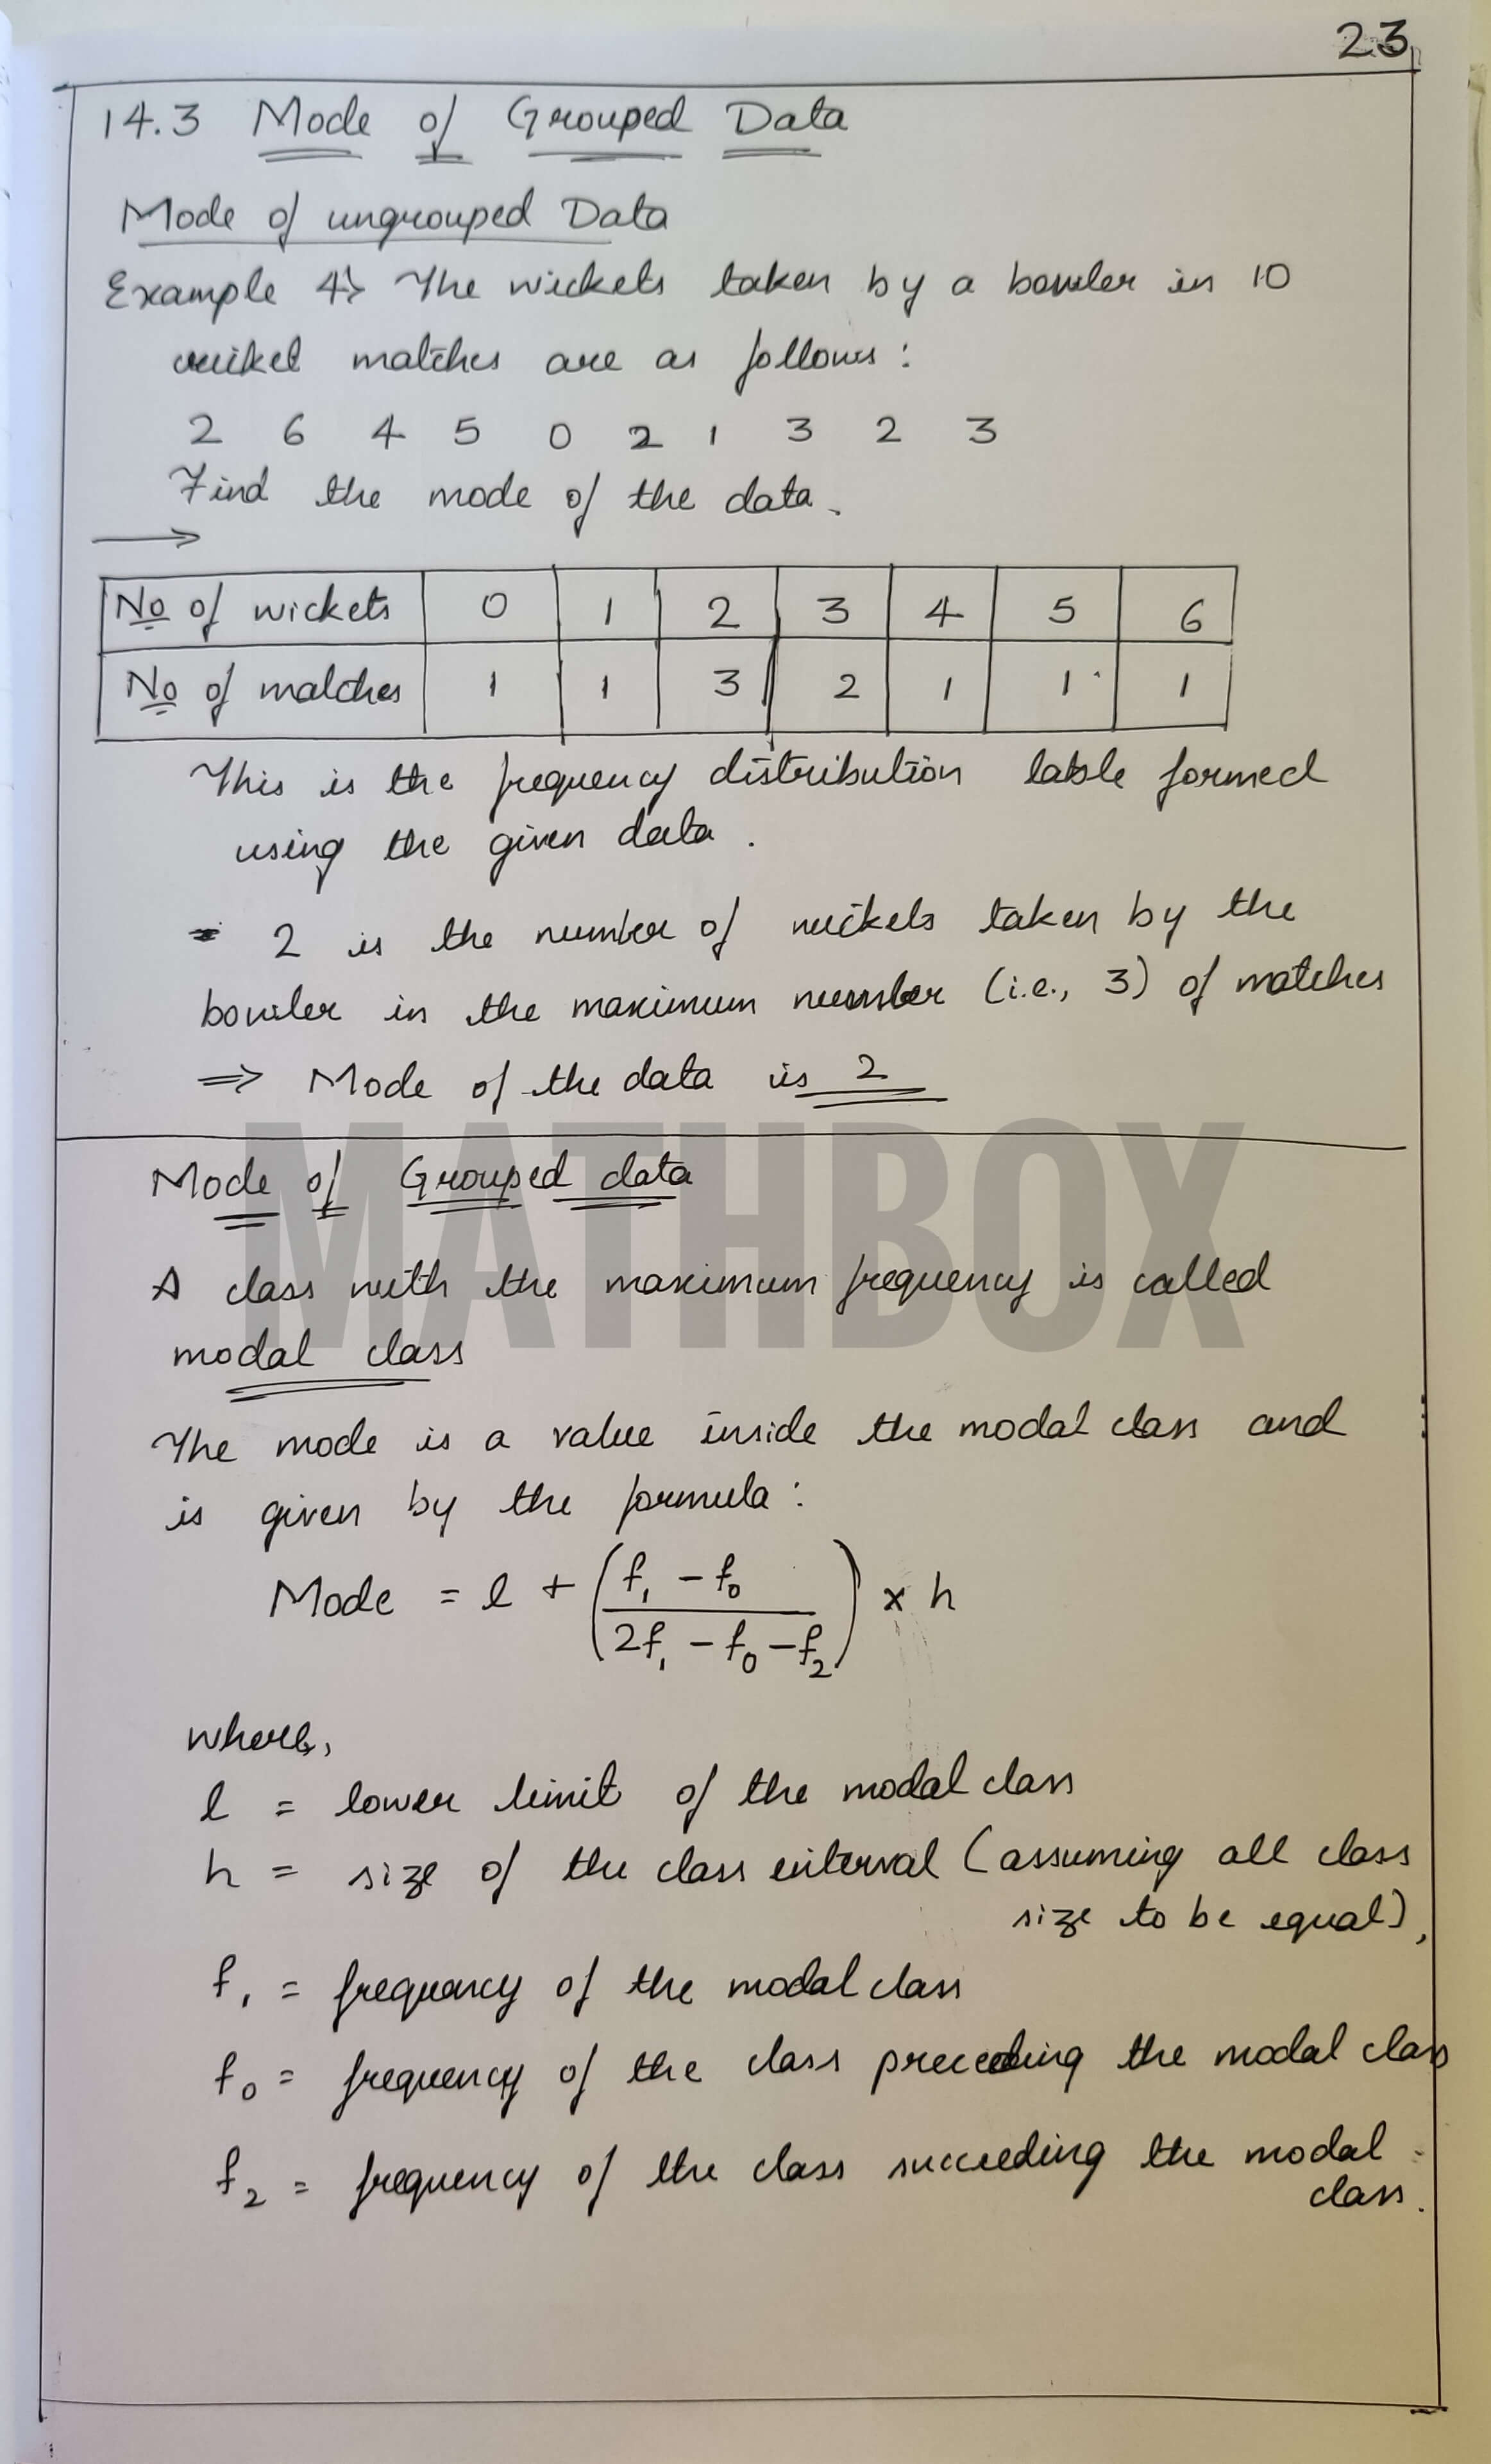 23
14.3 Mode of Grouped Data
Mode of ungrouped Data
Example 4> The wickets taken by a bowler in 10
cricket matches are as follows:
2 6 4 5 0 2 1 3 2 3
Find the mode of the data.
→
No of wickets 0 1 2 3 4 5 6
No of matches 1 1 3 2 1 1 1
This is the frequency distribution table formed
using the given data.
- 2 is the number of wickets taken by the
bowler in the maximum number (i.e., 3) of matches
⇒ Mode of the data is 2
MATHBOX
Mode of Grouped data
A class with the maximum frequency is called
modal class
The mode is a value inside the modal class and
is given by the formula:
Mode = l + (f₁ - f₀ / 2f₁ - f₀ - f₂) × h
where,
l = lower limit of the modal class
h = size of the class interval (assuming all class
size to be equal),
f₁ = frequency of the modal class
f₀ = frequency of the class preceeding the modal class
f₂ = frequency of the class succeeding the modal
class.